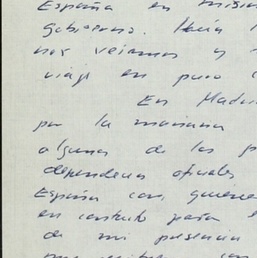 España en misión
gobierno. Hacía
nos veíamos y
viaje en puro
En Madrid
por la mañana
algunas de las p
dependencias oficiales
España con quienes
en contacto para e
de mi presencia